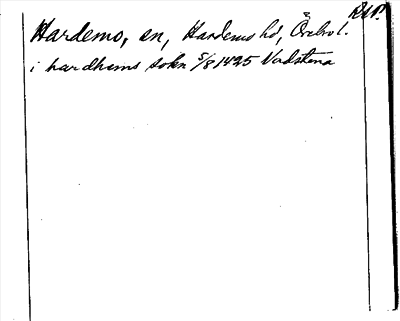 RAP.
Hardemo, sn, Hardemo hd, Örebro l.
i hardhems sokn 5/8 1425 Vadstena